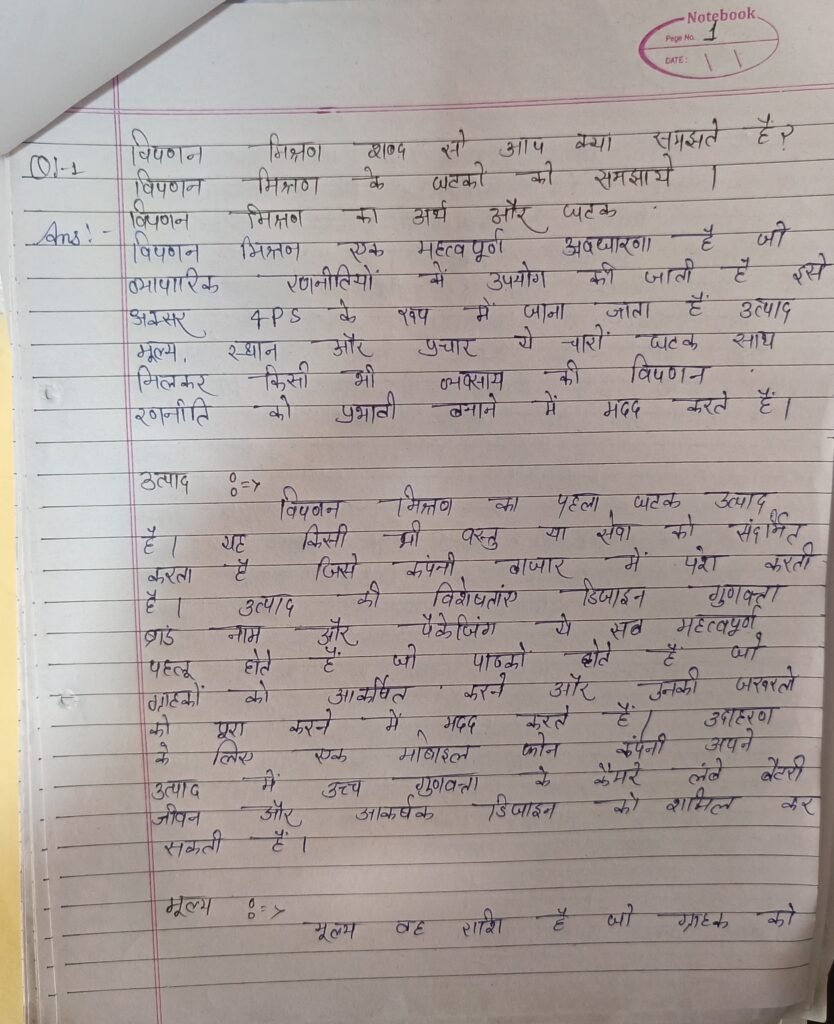 Notebook
Page No. 1
DATE: / /
Q1-1 विपणन मिश्रण शब्द से आप क्या समझते हैं?
विपणन मिश्रण के घटकों को समझाये ।
Ans:- विपणन मिश्रण का अर्थ और घटक
विपणन मिश्रण एक महत्वपूर्ण अवधारणा है जो
व्यापारिक रणनीतियों में उपयोग की जाती है इसे
अक्सर 4PS के रूप में जाना जाता हैं उत्पाद
मूल्य, स्थान और प्रचार ये चारों घटक साथ
मिलकर किसी भी व्यवसाय की विपणन
रणनीति को प्रभावी बनाने में मदद करते हैं ।
उत्पाद :=>
विपणन मिश्रण का पहला घटक उत्पाद
है । यह किसी भी वस्तु या सेवा को संदर्भित
करता है जिसे कंपनी बाजार में पेश करती
है । उत्पाद की विशेषताएं डिजाइन गुणवत्ता
ब्रांड नाम और पैकेजिंग ये सब महत्वपूर्ण
पहलू होते हैं जो पाठकों होते हैं जो
ग्राहकों को आकर्षित करने और उनकी जरूरतो
को पूरा करने में मदद करते हैं । उदाहरण
के लिए एक मोबाइल फोन कंपनी अपने
उत्पाद में उच्च गुणवत्ता के कैमरे लंबे बैटरी
जीवन और आकर्षक डिजाइन को शामिल कर
सकती हैं ।
मूल्य :=>
मूल्य वह राशि है जो ग्राहक को